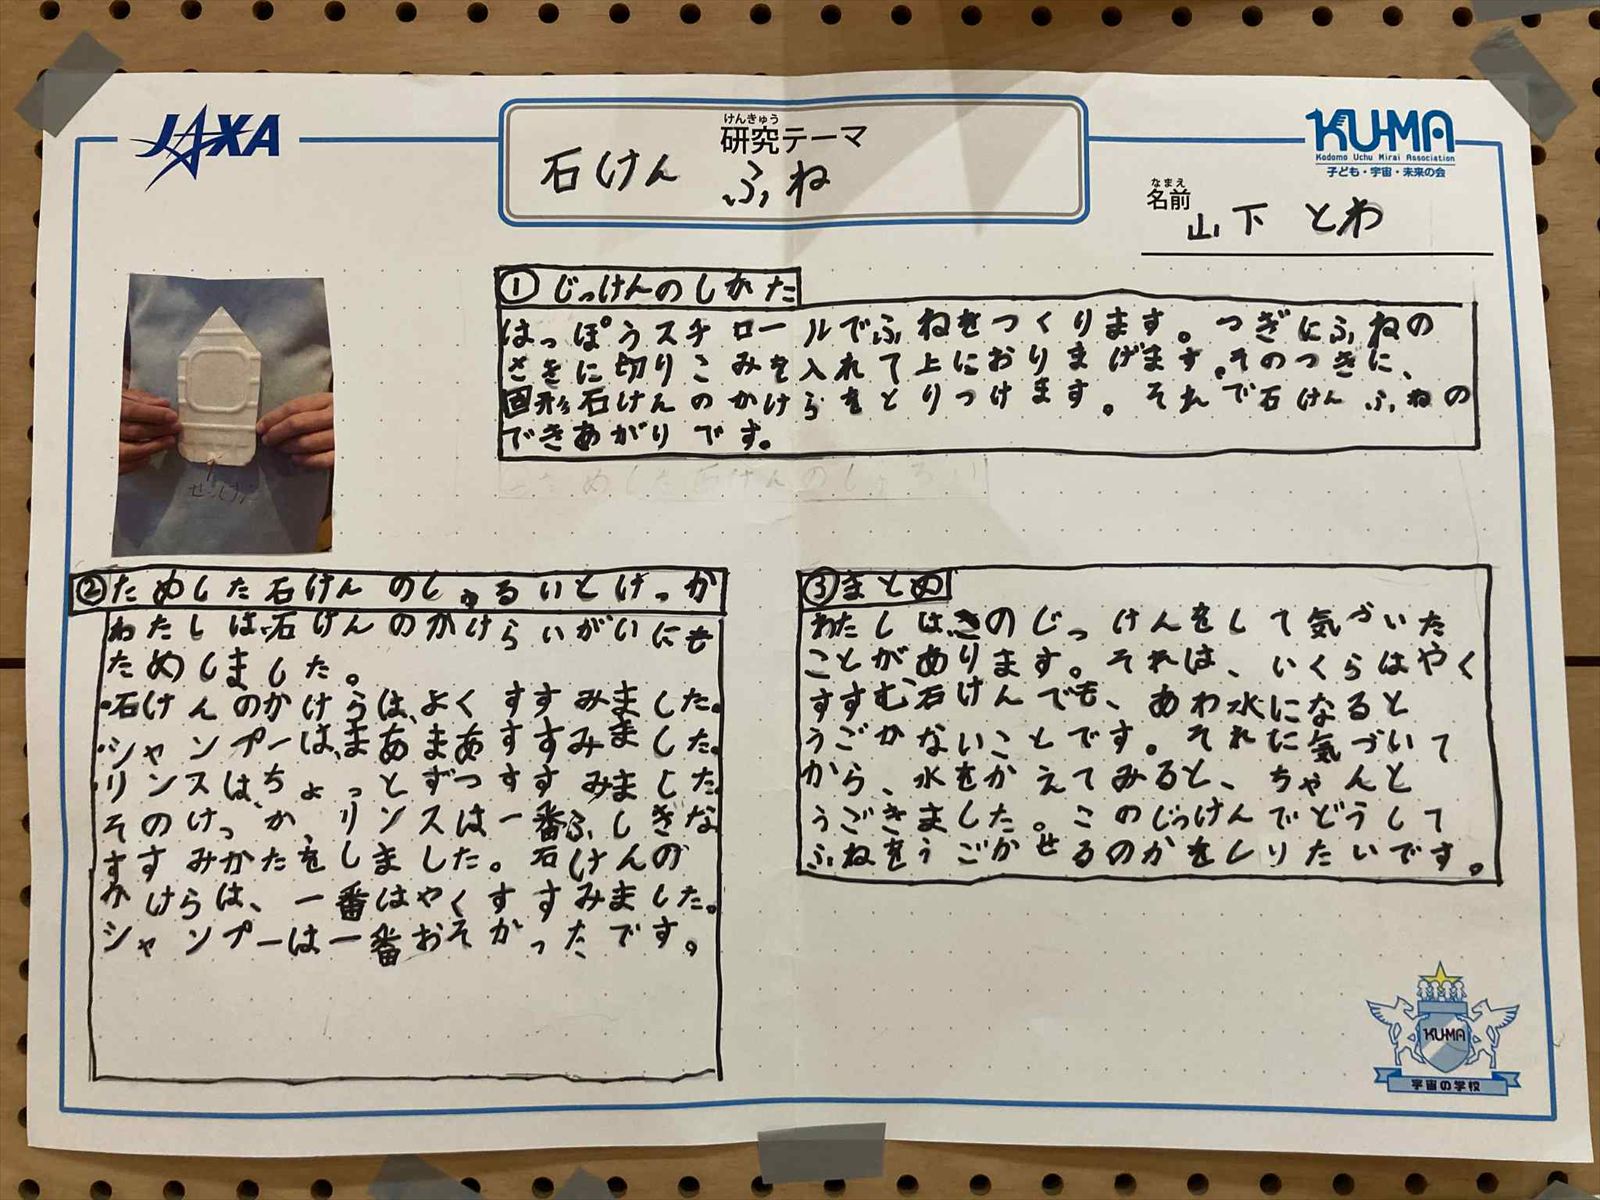 JAXA
けんきゅう
研究テーマ
石けん ふね
KUMA
Kodomo Uchu Mirai Association
子ども・宇宙・未来の会
なまえ
名前
山下 とわ
①じっけんのしかた
はっぽうスチロールでふねをつくります。つぎにふねの
さきに切りこみを入れて上におりまげます。そのつきに、
固形石けんのかけらをとりつけます。それで石けんふねの
できあがりです。
せっけん
ためした石けんのしゅるい
②ためした石けんのしゅるいとけっか
わたしは、石けんのかけらいがいにも
ためしました。
・石けんのかけらは、よくすすみました。
・シャンプーは、まあまあすすみました。
・リンスは、ちょっとずつすすみました
そのけっか、リンスは一番ふしぎな
すすみかたをしました。石けんの
かけらは、一番はやくすすみました。
シャンプーは一番おそかったです。
③まとめ
わたしは、きのじっけんをして気づいた
ことがあります。それは、いくらはやく
すすむ、石けんでも、あわ水になると
うごかないことです。それに気づいて
から、水をかえてみると、ちゃんと
うごきました。このじっけんでどうして
ふねをうごかせるのかをしりたいです。
KUMA
宇宙の学校